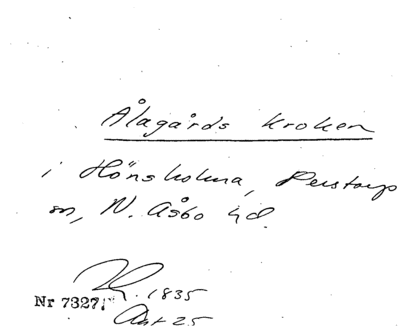 Ålagårds kroken
i Hönsholma, Perstorps
sn, N. Åsbo hd.
1835
Nr 7327.
Akt 25